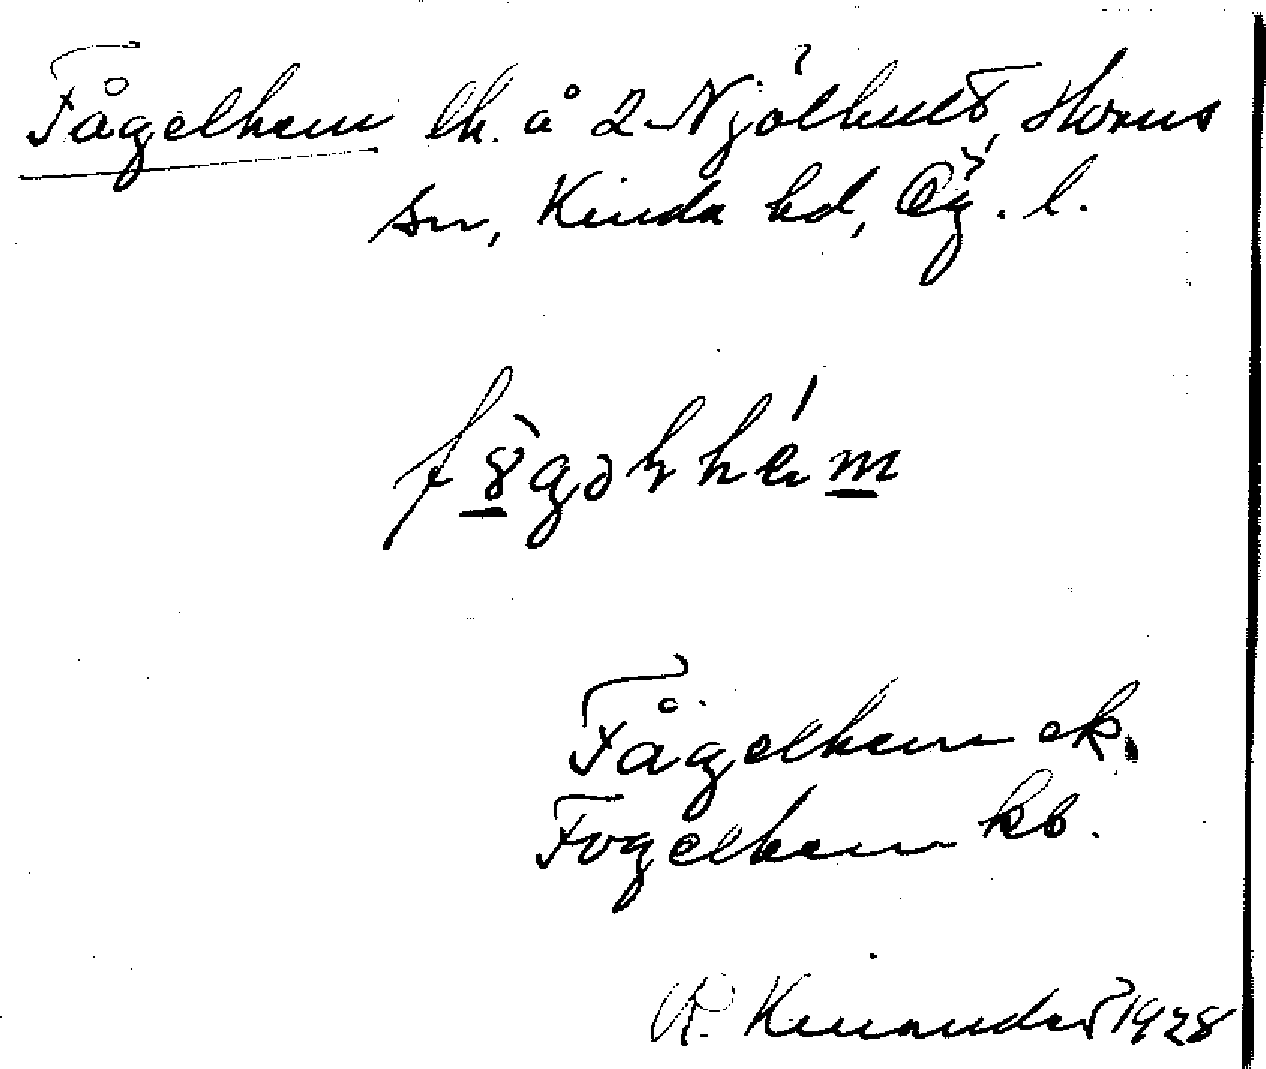 Fågelhem lh. å 2 Njölhult, Horns
sn, Kinda hd, Ög. l.
Fågelhem ek.
Fogelhem kb.
R. Kinander 1928